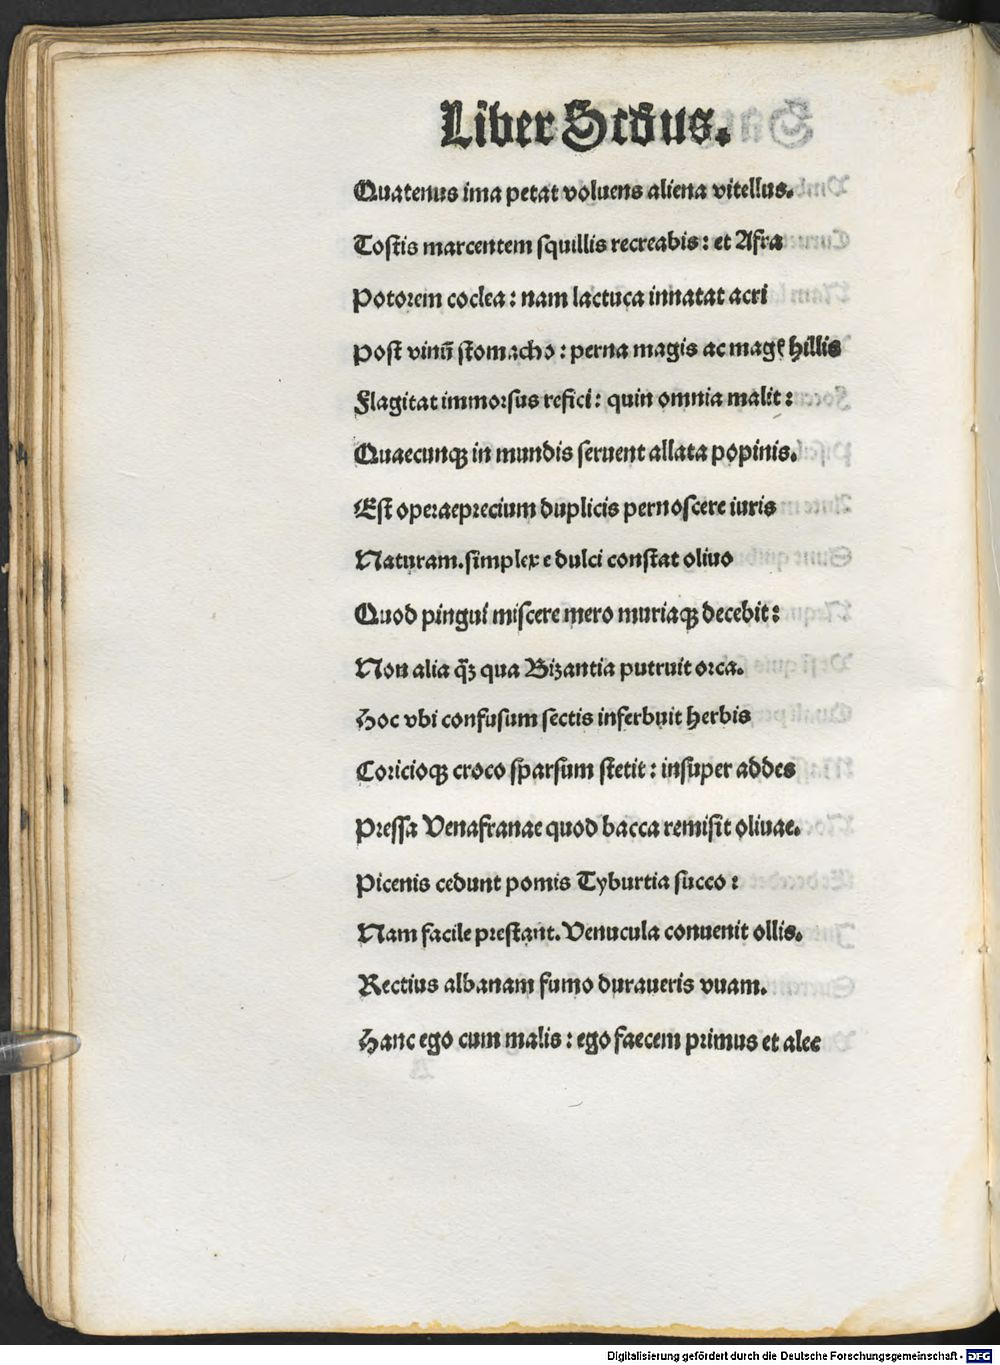 Liber Scd̃us.
Quatenus ima petat voluens aliena vitellus.
Tostis marcentem squillis recreabis: et Afra
Potorem coclea: nam lactuca innatat acri
Post vinũ stomacho: perna magis ac magꝭ hillis
Flagitat immorsus refici: quin omnia malit:
Quaecunqꝫ in mundis feruent allata popinis.
Est operaeprecium duplicis pernoscere iuris
Naturam. simplex e dulci constat oliuo
Quod pingui miscere mero muriaqꝫ decebit:
Non alia q̃ꝫ qua Bizantia putruit orca.
Hoc vbi confusum sectis inferbuit herbis
Coricioqꝫ croco sparsum stetit: insuper addes
Pressa Venafranae quod bacca remisit oliuae.
Picenis cedunt pomis Tyburtia succo:
Nam facile prestant. Venucula conuenit ollis.
Rectius albanam fumo duraueris vuam.
Hanc ego cum malis: ego faecem primus et alec
Digitalisierung gefördert durch die Deutsche Forschungsgemeinschaft - DFG